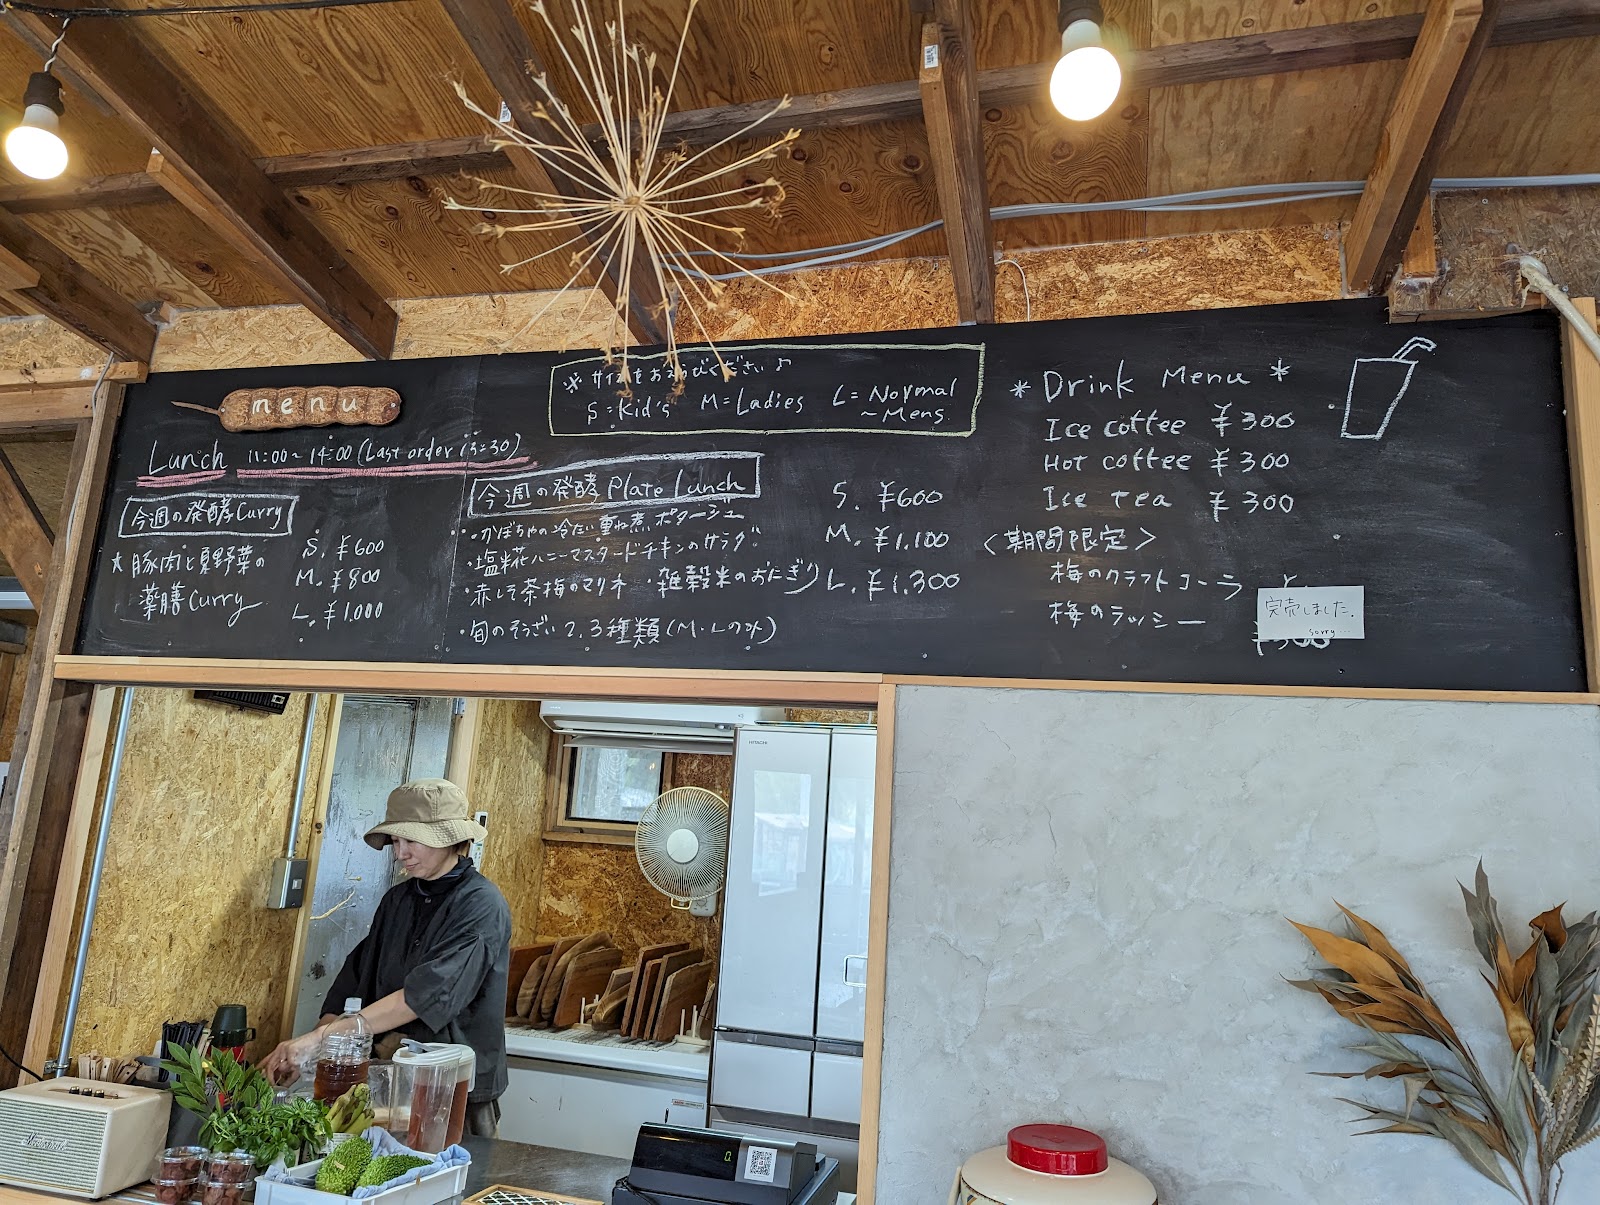 menu
Lunch 11:00~14:00 (Last order 13:30)
今週の発酵Curry
★豚肉と夏野菜の
薬膳Curry
S. ¥600
M. ¥800
L. ¥1.000
※サイズをお選びください♪
S=Kid's M=Ladies L=Normal
~Mens.
今週の発酵Plate Lunch
・かぼちゃの冷たい重ね煮ポタージュ
・塩糀ハニーマスタードチキンのサラダ
・赤しそ茶梅のマリネ ・雑穀米のおにぎり
・旬のそうざい2,3種類(M・Lのみ)
S. ¥600
M. ¥1.100
L. ¥1.300
* Drink Menu *
Ice coffee ¥300
Hot coffee ¥300
Ice tea ¥300
<期間限定>
梅のクラフトコーラ
梅のラッシー
完売しました.
sorry...
HITACHI
Marshall
0